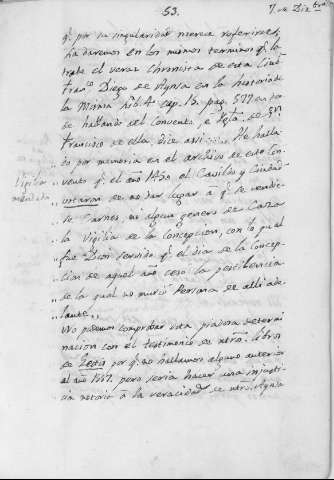 53.
7. de Dizre.
q.e por su singularidad merece referirse, y
ha daremos en los mismos terminos q.e lo
trahe el veraz Chronista de esta Ciud.
Fran.co Diego de Aynsa en la historia de
la Misma lib. 4.º cap. 13. pag. 577 en do
de hablando del Convento, e Igla. de Sn.
Francisco de ella, dice assi: He halla-
do por memoria en el archivo de este Con
vento q.e el año 1450 el Cavildo, y Ciudad
votaron de no dar lugar á q.e se vendie-
se Carnes, ni algun genero de Caza
la Vigilia de la Concepcion, con lo qual
fue Dios servido q.e el dia de la Concep-
cion de aquel año cesó la pestilencia
de la qual no murió Persona de alli ade
lante.
No podemos comprobar esta piadosa determi
nacion con el testimonio de ntros. libros
de Gestis por q.e no hallamos alguno anterior
al año 1557. pero seria hacer una injusti-
cia notoria á la veracidad de ntro. Aynsa
Vigilia